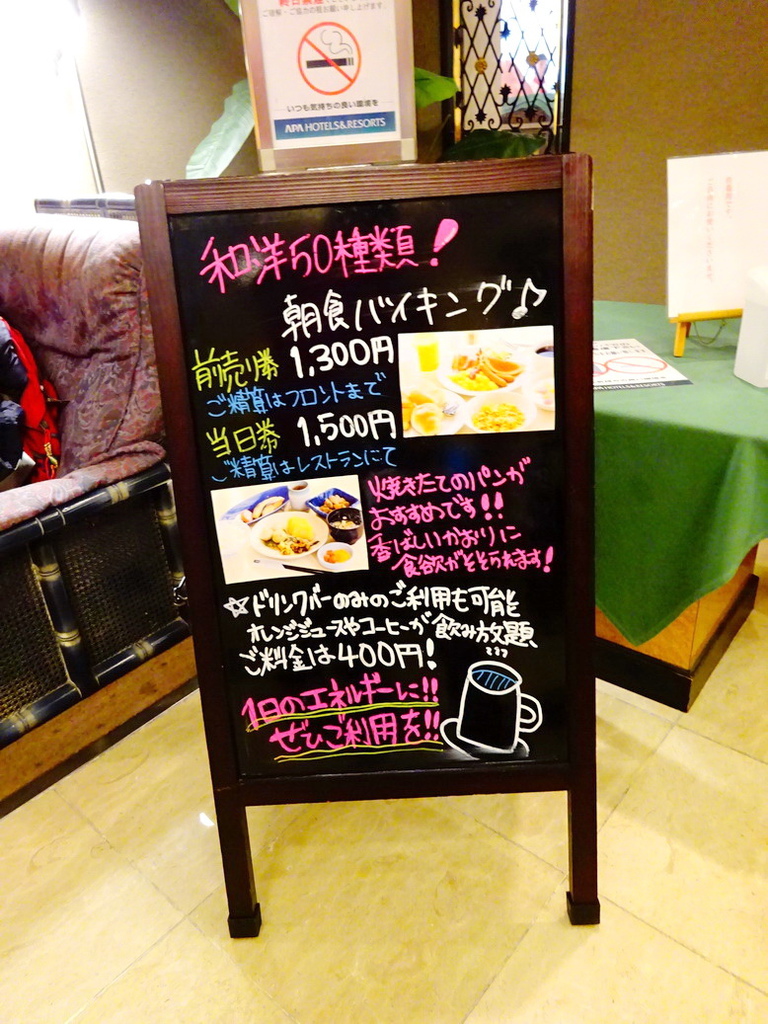 ご理解・ご協力の程お願い申し上げます。
いつも気持ちの良い環境を
APA HOTELS&RESORTS
和洋50種類!
朝食バイキング♪
前売り券 1,300円
ご精算はフロントまで
当日券 1,500円
ご精算はレストランにて
焼きたてのパンが
おすすめです!!
香ばしいかおりに
食欲がそそられます!
☆ドリンクバーのみのご利用も可能
オレンジジュースやコーヒーが飲み放題、
ご料金は400円!
1日のエネルギーに!!
ぜひご利用を!!